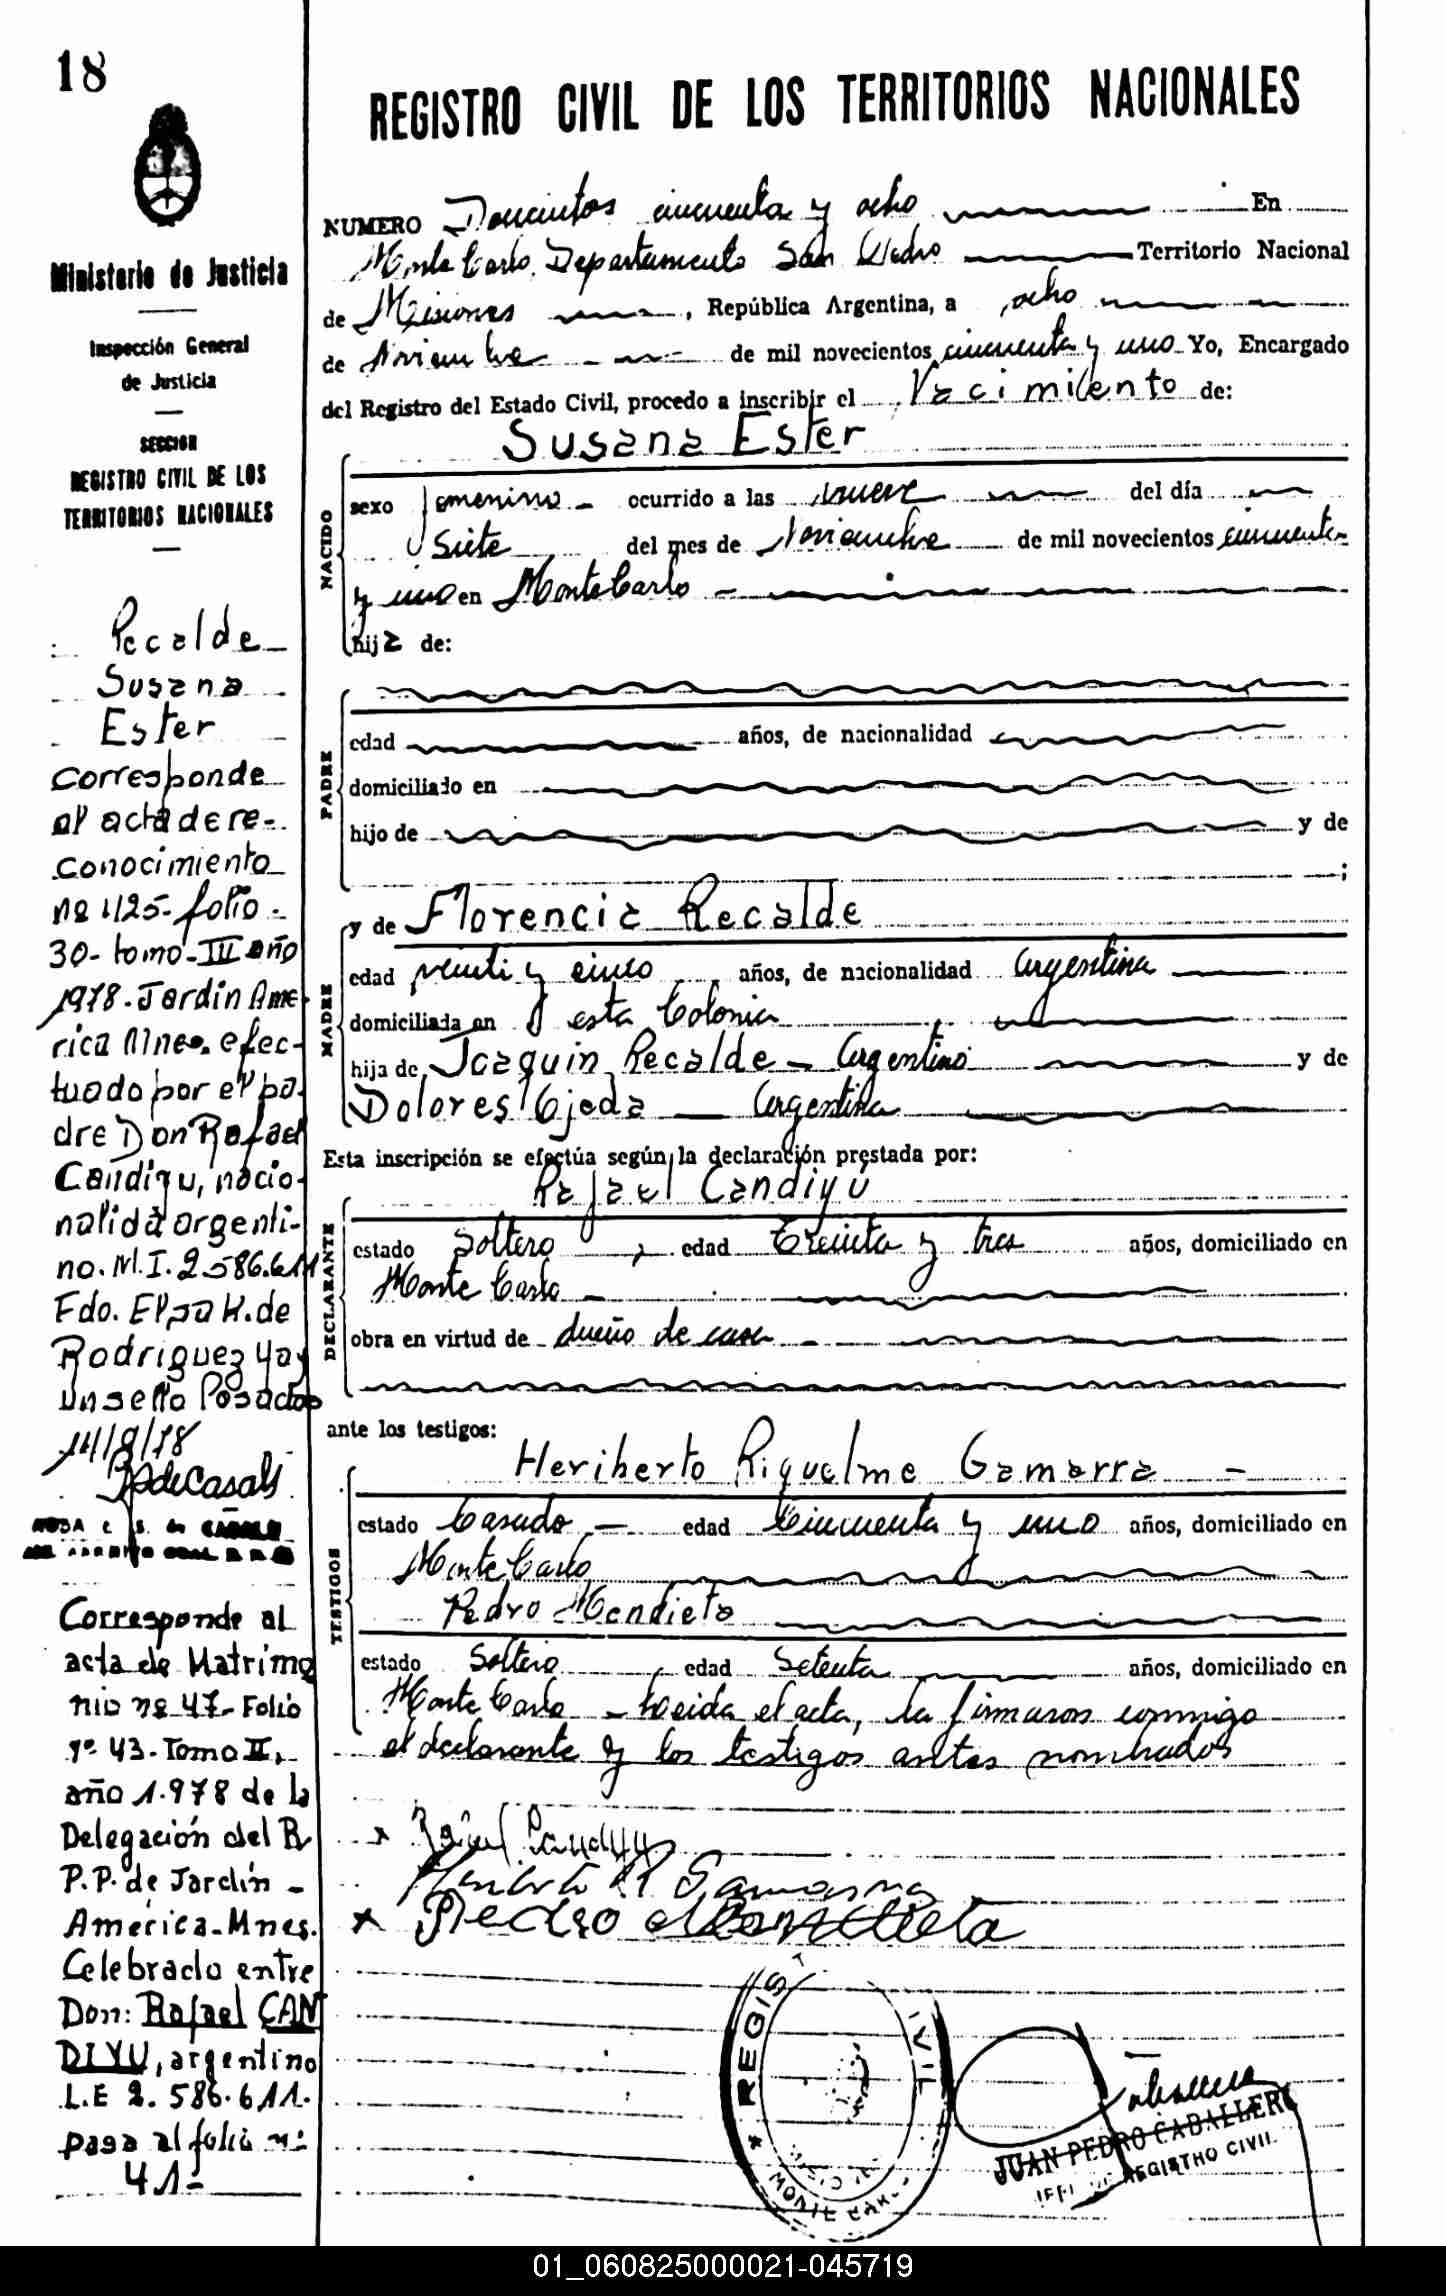 18
Ministerio de Justicia
Inspección General
de Justicia
SECCION
REGISTRO CIVIL DE LOS
TERRITORIOS NACIONALES
Recalde
Susana
Ester
Corresponde
al acta de re-
conocimiento
nº 1125- folio
30- tomo-III año
1978- Jardin Ame
rica Mnes. efec-
tuado por el pa-
dre Don Rafael
Candiyu, nacio-
nalida argenti-
no. M.I. 2586.611
Fdo. Elsa H. de
Rodriguez y ay
un sello Posadas
14/9/78
Corresponde al
acta de Matrimo
nio nº 47- Folio
nº 43- Tomo II,
año 1.978 de la
Delegación del R
P.P. de Jardín -
América-Mnes.
Celebrado entre
Don: Rafael CAN
DIYU, argentino
L.E 2.586.611.
pasa al folio nº
41-
REGISTRO CIVIL DE LOS TERRITORIOS NACIONALES
NUMERO Doscientos cincuenta y ocho En
Monte Carlo, Departamento San Pedro Territorio Nacional
de Misiones, República Argentina, a ocho
de Noviembre de mil novecientos cincuenta y uno Yo, Encargado
del Registro del Estado Civil, procedo a inscribir el Nacimiento de:
Susana Ester
NACIDO
sexo femenino - ocurrido a las nueve del día
siete del mes de Noviembre de mil novecientos cincuenta
y uno en Monte Carlo -
hija de:
PADRE
edad años, de nacionalidad
domiciliado en
hijo de y de
;
y de Florencia Recalde
MADRE
edad veinti y cinco años, de nacionalidad Argentina
domiciliada en esta Colonia
hija de Joaquin Recalde - Argentino y de
Dolores Ojeda - Argentina
Esta inscripción se efectúa según la declaración prestada por:
Rafael Candiyú
DECLARANTE
estado Soltero, edad Treinta y tres años, domiciliado en
Monte Carlo -
obra en virtud de dueño de casa -
ante los testigos:
Heriberto Riquelme Gamarra -
TESTIGOS
estado Casado - edad Cincuenta y uno años, domiciliado en
Monte Carlo
Pedro Mendieta
estado Soltero, edad Setenta años, domiciliado en
Monte Carlo - Leida el acta, la firmaron conmigo
el declarante y los testigos antes nombrados
x Rafael Candiyu
Heriberto R Gamarra
x Pedro Mendieta
REGIST CIVIL
MONTE CAR
JUAN PEDRO CABALLERO
REGISTRO CIVIL
01_060825000021-045719